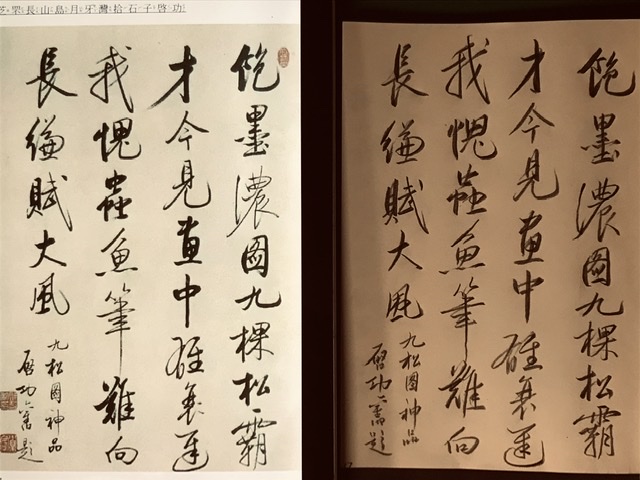 芝罘長山島月牙灣拾石子啓功
飽墨濃圖九棵松霸
才今見畫中雄衰遲
我愧蟲魚筆難向
長縑賦大風
九松圖神品
啓功題
飽墨濃圖九棵松霸
才今見畫中雄衰遲
我愧蟲魚筆難向
長縑賦大風
九松圖神品
啓功題